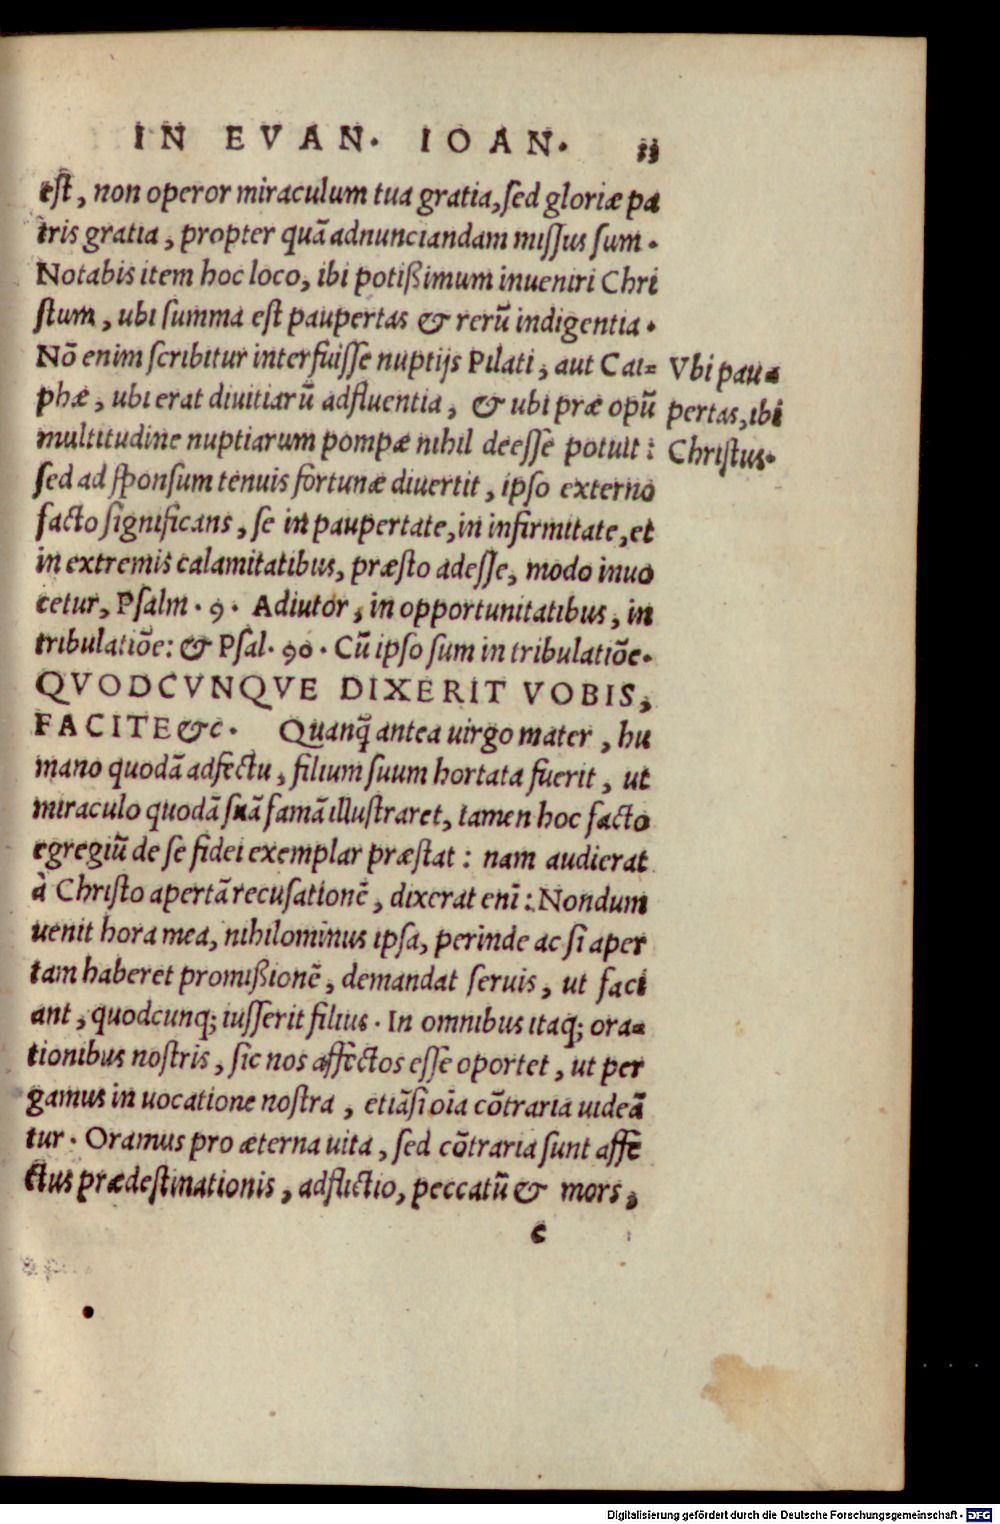 IN EVAN. IOAN. 33
est, non operor miraculum tua gratia, sed gloriæ pa
tris gratia, propter quã adnunciandam missus sum.
Notabis item hoc loco, ibi potißimum inueniri Chri
stum, ubi summa est paupertas & rerũ indigentia.
Nõ enim scribitur interfuisse nuptijs Pilati, aut Cai=
phæ, ubi erat diuitiarũ adfluentia, & ubi præ opũ
multitudine nuptiarum pompæ nihil deesse potuit:
sed ad sponsum tenuis fortunæ diuertit, ipso externo
facto significans, se in paupertate, in infirmitate, et
in extremis calamitatibus, præsto adesse, modo inuo
cetur, Psalm. 9. Adiutor, in opportunitatibus, in
tribulatiõe: & Psal. 90. Cũ ipso sum in tribulatiõe.
QVODCVNQVE DIXERIT VOBIS,
FACITE &c. Quanq̃ antea uirgo mater, hu
mano quodã adfectu, filium suum hortata fuerit, ut
miraculo quodã suã famã illustraret, tamen hoc facto
egregiũ de se fidei exemplar præstat: nam audierat
à Christo apertã recusationẽ, dixerat enĩ: Nondum
uenit hora mea, nihilominus ipsa, perinde ac si aper
tam haberet promißionẽ, demandat seruis, ut faci
ant, quodcunq; iusserit filius. In omnibus itaq; ora=
tionibus nostris, sic nos affectos esse oportet, ut per
gamus in uocatione nostra, etiãsi oĩa cõtraria uideã
tur. Oramus pro æterna uita, sed cõtraria sunt affe
ctus prædestinationis, adflictio, peccatũ & mors,
c
Vbi pau=
pertas, ibi
Christus.
Digitalisierung gefördert durch die Deutsche Forschungsgemeinschaft - DFG